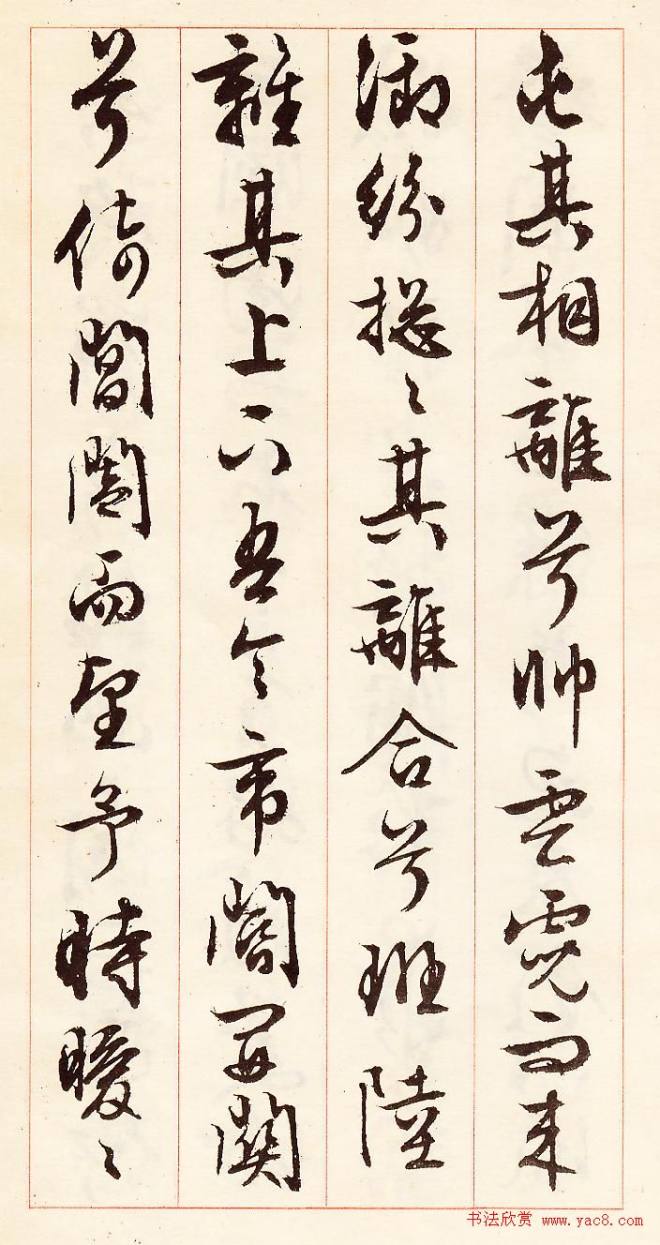 屯其相離兮帥雲霓而来
御紛揔々其離合兮班陸
離其上下吾令帝閽開關
兮倚閶闔而望予時曖々
书法欣赏 www.yac8.com